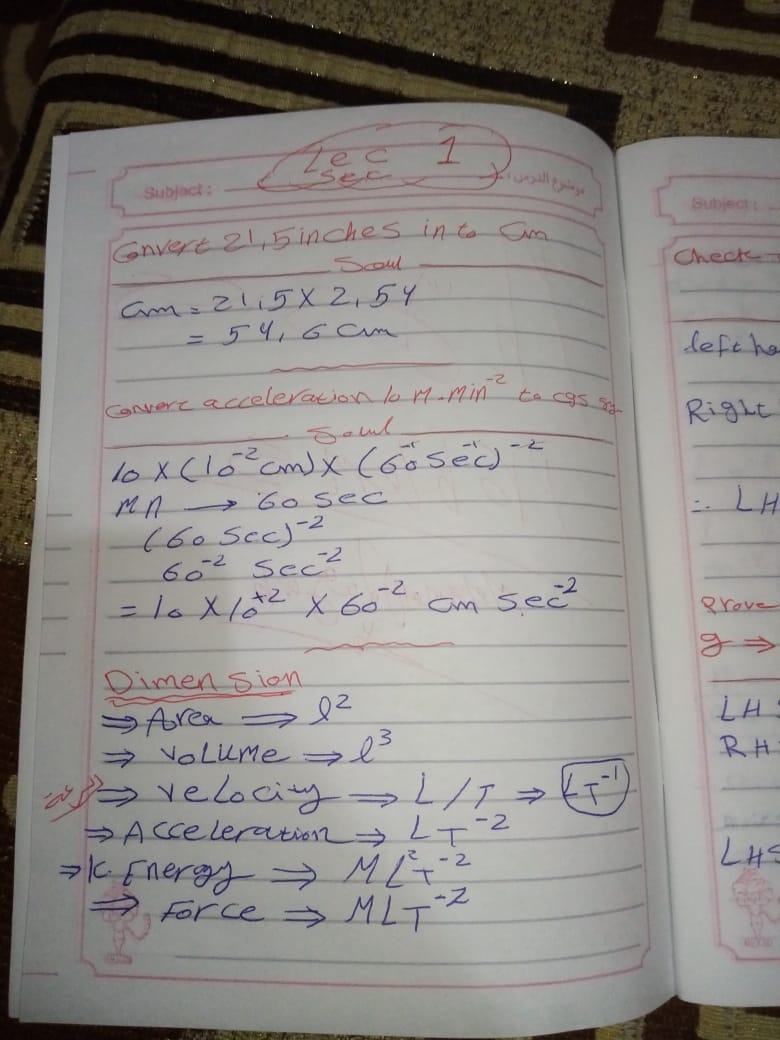 Lec 1
sec
Subject :
موضوع الدرس :
Convert 21,5 inches in to Cm
Soul
Cm = 21,5 X 2,54
= 54,6 Cm
Convert acceleration 10 M.Min⁻² to cgs sy
Soul
10 X (10⁻² cm) X (60⁻¹ Sec⁻¹)⁻²
→ 60 sec
(60 Sec)⁻²
60⁻² Sec⁻²
= 10 X 10⁺² X 60⁻² cm sec⁻²
Dimension
⇒ Area ⇒ l²
⇒ VOLUME ⇒ l³
⇒ velocity ⇒ L/T ⇒ LT⁻¹
⇒ Acceleration ⇒ LT⁻²
⇒ K. Energy ⇒ ML²T⁻²
⇒ Force ⇒ MLT⁻²
Subject :
Check
left ha
Right
∴ LH
Prove
g ⇒
LH
RH
LHS